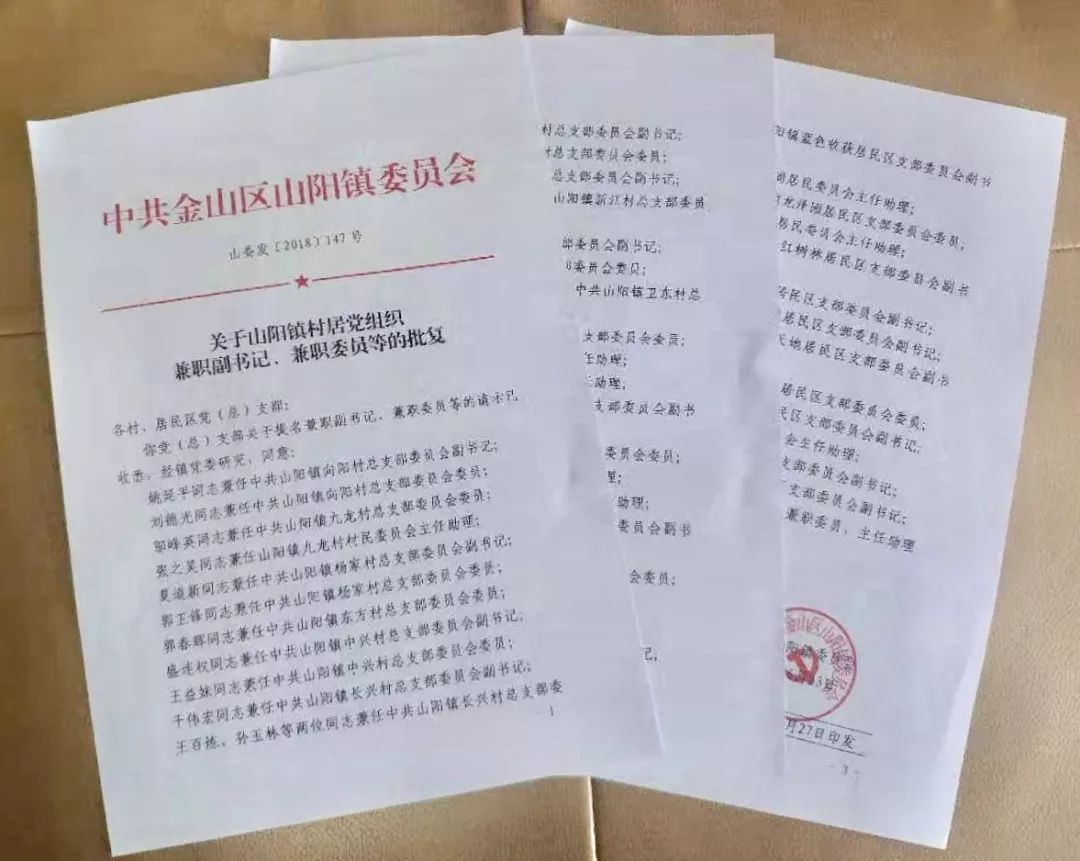 中共金山区山阳镇委员会
山委发〔2018〕147号
关于山阳镇村居党组织
兼职副书记、兼职委员等的批复
各村、居民区党（总）支部：
你党（总）支部关于提名兼职副书记、兼职委员等的请示已
收悉。经镇党委研究，同意：
姚冠平同志兼任中共山阳镇向阳村总支部委员会副书记；
刘德光同志兼任中共山阳镇向阳村总支部委员会委员；
邬峰英同志兼任中共山阳镇九龙村总支部委员会委员；
张之昊同志兼任山阳镇九龙村村民委员会主任助理；
夏道新同志兼任中共山阳镇杨家村总支部委员会副书记；
郭王锋同志兼任中共山阳镇杨家村总支部委员会委员；
郭春辉同志兼任中共山阳镇东方村总支部委员会委员；
盛连权同志兼任中共山阳镇中兴村总支部委员会副书记；
王益妹同志兼任中共山阳镇中兴村总支部委员会委员；
干伟宏同志兼任中共山阳镇长兴村总支部委员会副书记；
王百拣、孙玉林等两位同志兼任中共山阳镇长兴村总支部委
- 1
村总支部委员会副书记；
总支部委员会委员；
总支部委员会副书记；
山阳镇新江村总支部委员
委员会副书记；
委员会委员；
中共山阳镇卫东村总
支部委员会委员；
助理；
助理；
支部委员会副书
委员会委员；
助理；
委员会副书
会委员；
记；
阳镇蓝色收获居民区支部委员会副书
居民委员会主任助理；
龙泽园居民区支部委员会委员；
居民委员会主任助理；
红树林居民区支部委员会副书
居民区支部委员会副书记；
居民区支部委员会副书记；
天地居民区支部委员会副书
居民区支部委员会委员；
民区支部委员会副书记；
会主任助理；
支部委员会副书记；
支部委员会副书记；
兼职委员、主任助理
金山区山阳镇委员会
阳镇委
3日
月27日印发
- 3 -